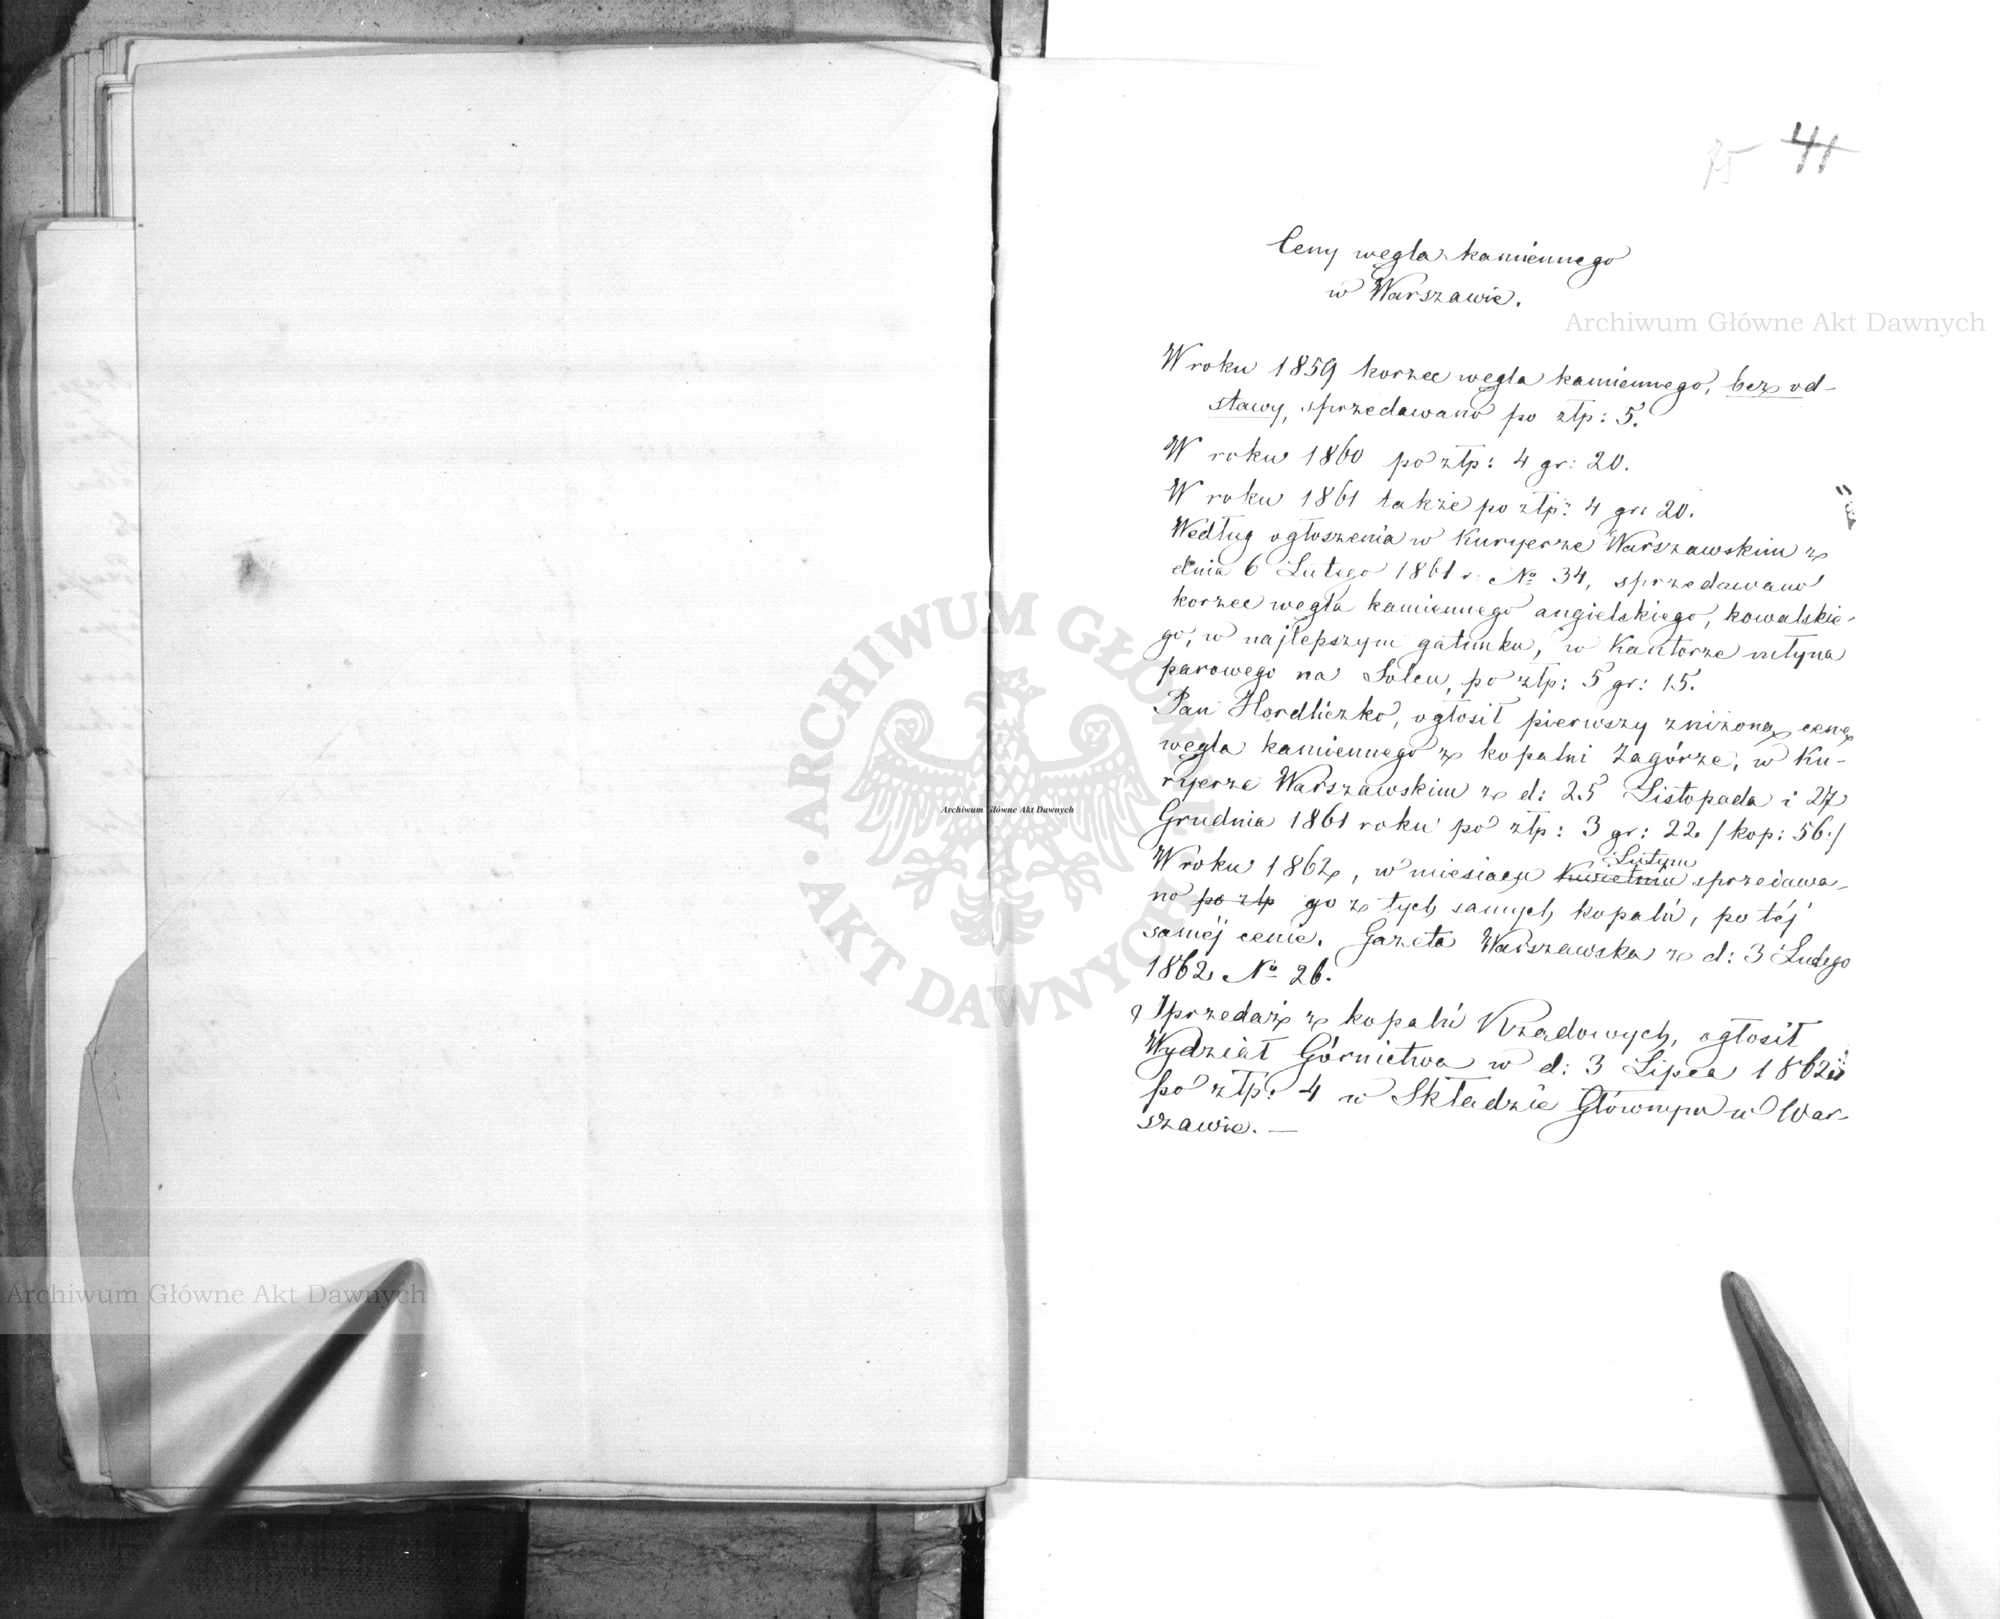 75 41
Ceny węgla kamiennego
w Warszawie.
Archiwum Główne Akt Dawnych
W roku 1859 korzec węgla kamiennego, bez od-
stawy, sprzedawano po złp: 5.
W roku 1860 po złp: 4 gr: 20.
W roku 1861 także po złp: 4 gr: 20.
Według ogłoszenia w Kuryerze Warszawskim z
dnia 6 Lutego 1861 r. No 34, sprzedawano
korzec węgla kamiennego angielskiego, kowalskie-
go, w najlepszym gatunku, w Kantorze młyna
parowego na Solcu, po złp: 5 gr: 15.
Pan Hordliczko, ogłosił pierwszy zniżoną cenę
węgla kamiennego z kopalni Zagórze, w Ku-
ryerze Warszawskim z d: 25 Listopada i 27
Grudnia 1861 roku po złp: 3 gr: 22. /kop: 56./
W roku 1862, w miesiącu Kwietniu Lutym sprzedawa-
no po złp go z tych samych kopalń, po téj
saméj cenie. Gazeta Warszawska z d: 3 Lutego
1862 No 26.
Sprzedaż z kopalń Rządowych, ogłosił
Wydział Górnictwa w d: 3 Lipca 1862
po złp: 4 w Składzie Głównym w War-
szawie. —
ARCHIWUM GŁÓWNE AKT DAWNYCH
Archiwum Główne Akt Dawnych
Archiwum Główne Akt Dawnych